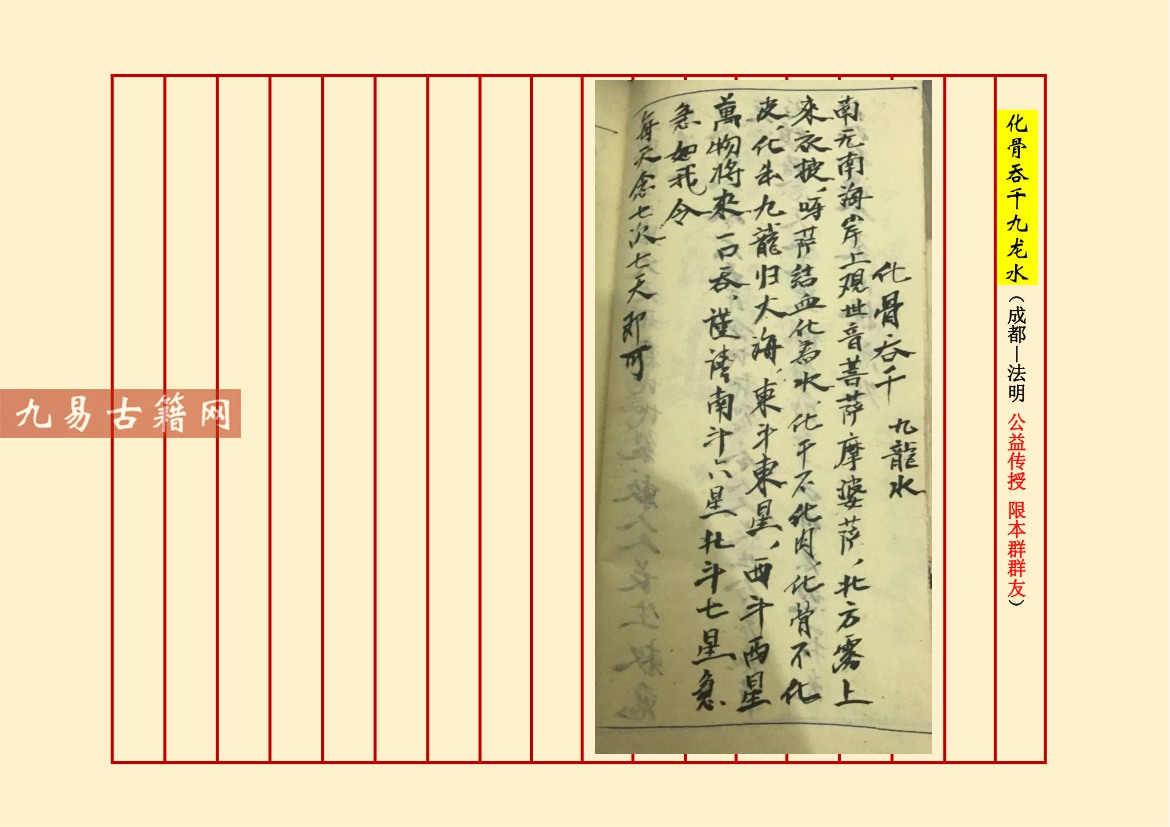 化骨吞千九龙水（成都—法明 公益传授 限本群群友）
化骨吞千 九龍水
南无南海岸上观世音菩萨摩婆萨，北方雾上
來衣披，呀菩結血化为水，化干不化肉，化骨不化
皮，化出九龍归大海，東斗東星，西斗西星
萬物将來一口吞，謹請南斗六星北斗七星急
急如我令
每天念七次七天即可
九易古籍网